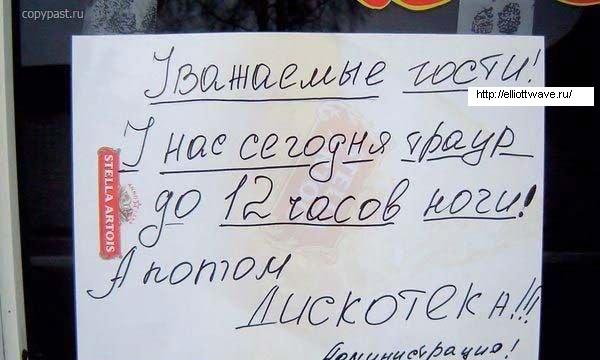 copypast.ru
Уважаемые гости!
http://elliottwave.ru/
У нас сегодня траур
до 12 часов ночи!
STELLA ARTOIS
А потом
Дискотека!!!
Администрация!